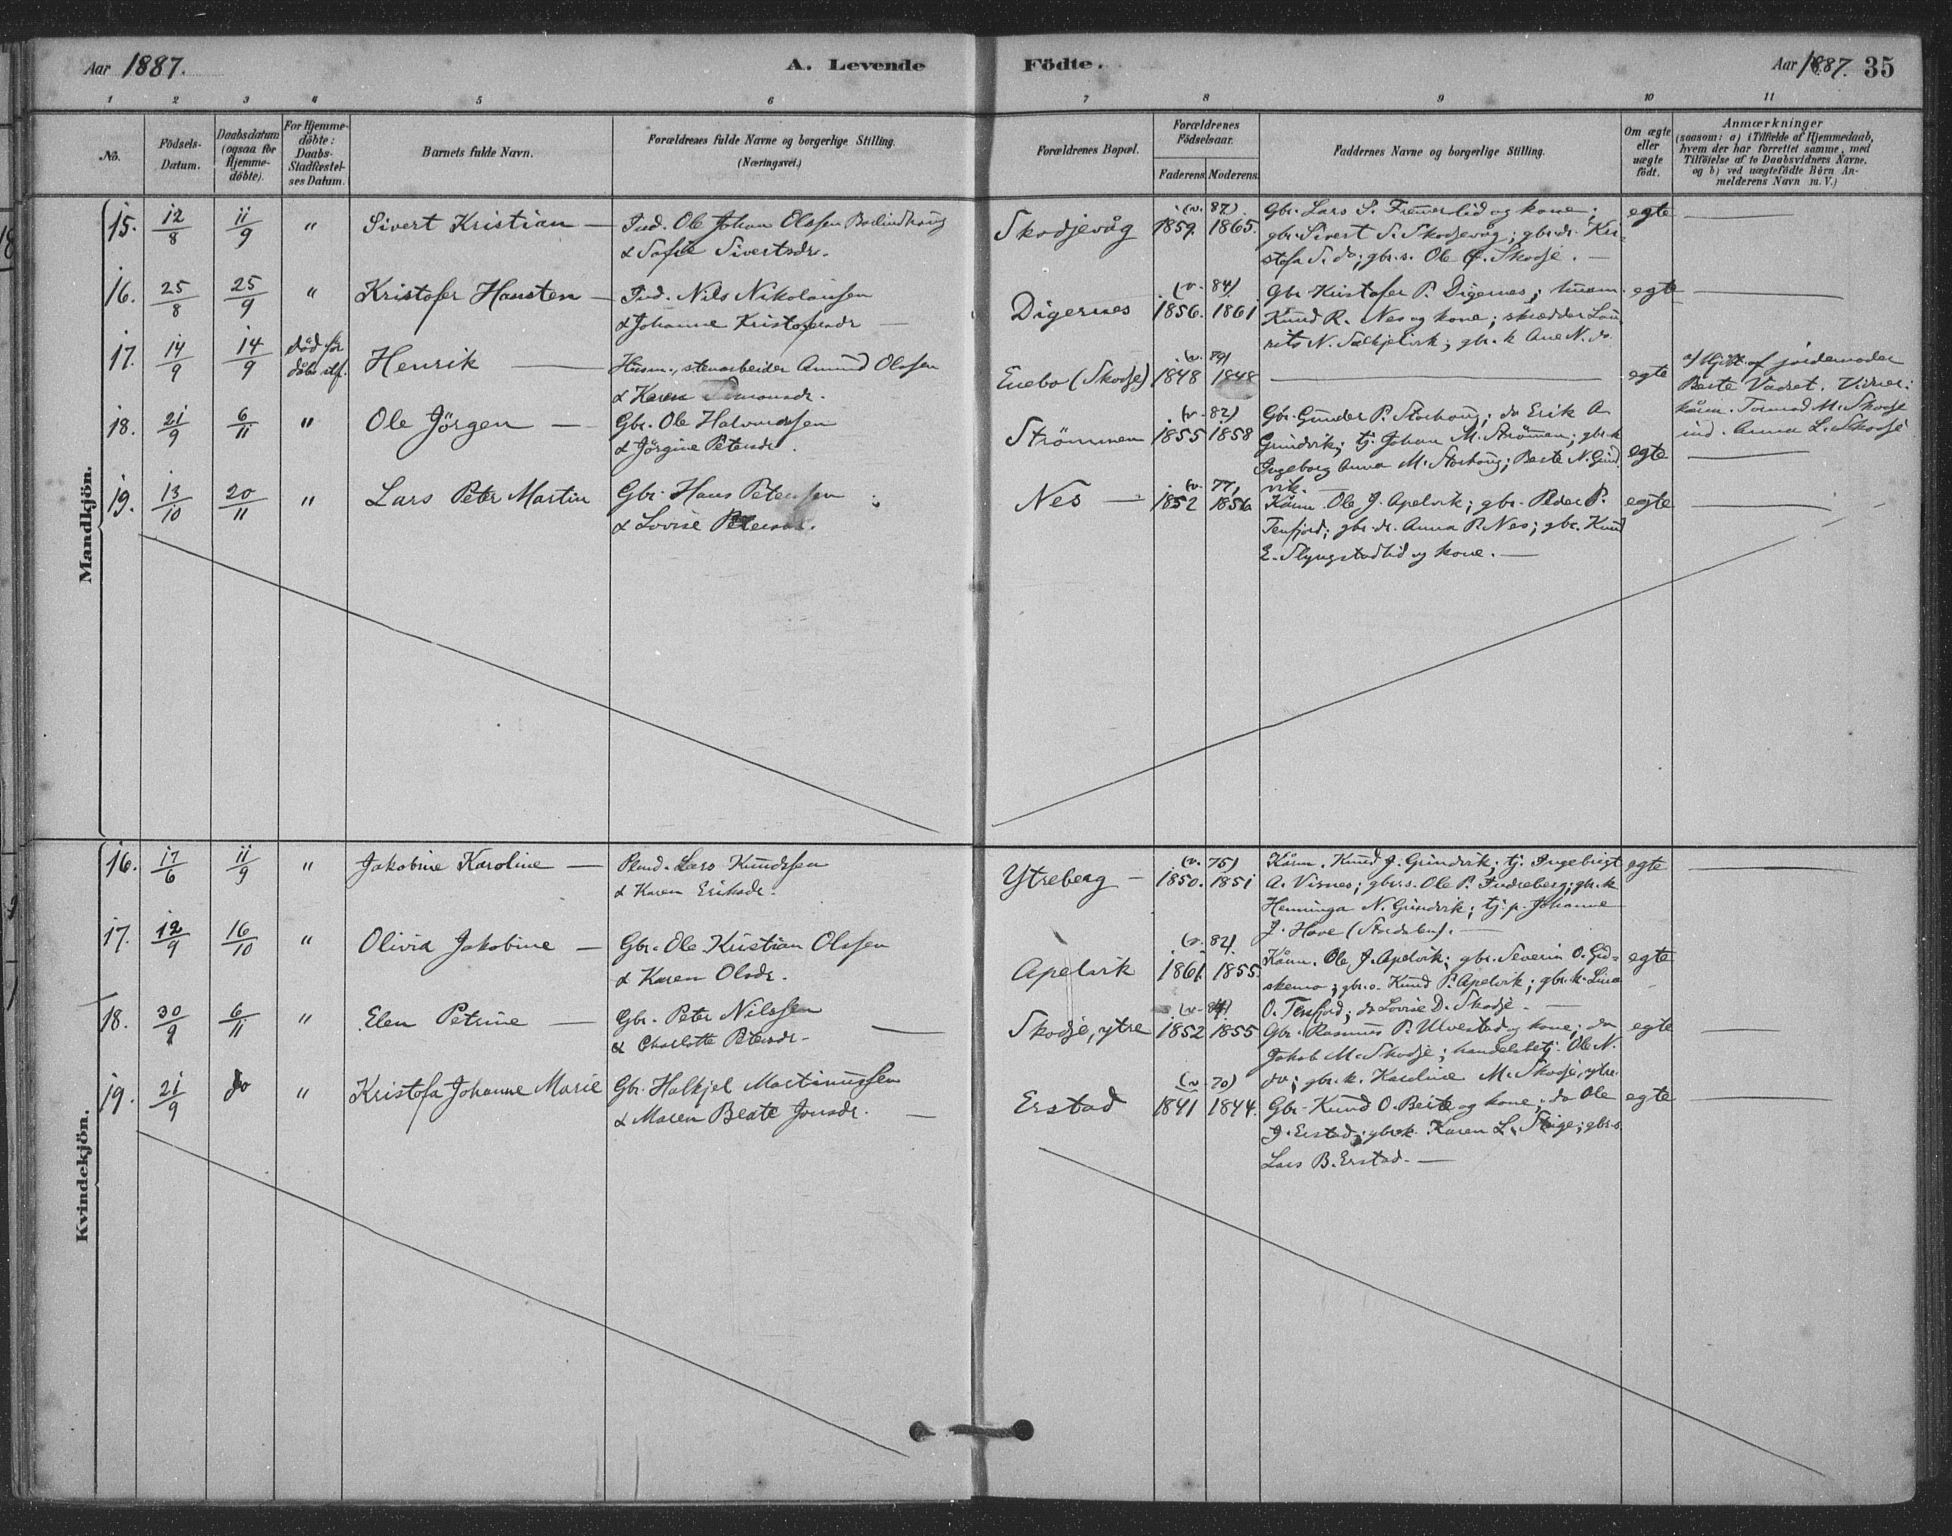 Aar 1887.
A. Levende Födte.
Aar 1887. 35
1 2 3 4 5 6 7 8 9 10 11
No.
Födsels-
Datum.
Daabsdatum
(ogsaa for
Hjemme-
döbte).
For Hjemme-
döbte:
Daabs-
Stadfæstel-
ses Datum.
Barnets fulde Navn.
Forældrenes fulde Navne og borgerlige Stilling.
(Næringsvei.)
Forældrenes Bopæl.
Forældrenes
Födselsaar.
Faderens. Moderens.
Faddernes Navne og borgerlige Stilling.
Om ægte
eller
uægte
födt.
Anmærkninger
(saasom: a) i Tilfælde af Hjemmedaab,
hvem der har forrettet samme, med
Tilföielse af to Daabsvidners Navne,
og b) ved uægtefödte Börn An-
melderens Navn m. V.)
Mandkjön.
15. 12/8 11/9 " Sivert Kristian —
Ind. Ole Johan Olssen
& Sofie Sivertsdr.
Skodjevåg
(v. 87)
1859. 1865.
Gbr. Lars S. og kone;
gbr. Sivert S. Skodjevåg; gbr.dr. Kri-
stofa S. do; gbr.s. Ole Skodje. —
egte —
16. 25/8 25/9 " Kristofer Hansten —
Ind. Nils Nikolaissen
& Johanne Kristofersdr —
Digernes
(v. 84)
1856. 1861
Gbr. Kristofer P. Digernes;
Knud R. Nes og kone; skrædder Lau-
rits N. gbr.k Ane N. do.
egte —
17. 14/9 14/9 död för
Henrik —
Husm., stenarbeider Amund Olssen
& Karen Simonsdr.
Enebo (Skodje)
1848 1848
—
egte
a) Hjdt. af jordemoder
Berte Vadset. Vidner:
kårm. Tormod M. Skodje
ind. Anna L. Skodje
18. 21/9 6/11 " Ole Jörgen —
Gbr. Ole Halvardssen
& Jörgine Petersdr.
Strömmen
(v. 82)
1855 1858
Gbr. Gunder P. Storhoug; do Erik A.
Grindvik; tj. Johan M. Strömmen; gbr.k
Ingeborg Anna M. Storhoug; Berte N. Grind-
vik. —
egte —
19. 13/10 20/11 " Lars Peter Martin
Gbr. Hans Peterssen
& Lovise Petersdr.
Nes —
(v. 77)
1852 1856
Kårm. Ole J. Apelvik; gbr. Peder P.
Tenfjord; gbr.dr. Anna P. Nes; gbr. Knud
E. Slyngstadlid og kone. —
egte —
Kvindekjön.
16. 17/6 11/9 " Jakobine Karoline —
Lars Knudssen
& Karen Eriksdr.
Ytreberg —
(v. 75)
1850. 1851
Kårm. Knud J. Grindvik; tj. Ingebrigt
A. Visnes; gbr.s. Ole P. Indreberg; gbr.k
Henninga N. Grindvik; tj.p. Johanne
J. Hove
egte —
17. 12/9 16/10 " Olivia Jakobine —
Gbr. Ole Kristian Olssen
& Karen Olsdr.
Apelvik
(v. 82)
1861. 1855
Kårm. Ole J. Apelvik; gbr. Severin O. Gid-
skemo; gbr.s. Knud P. Apelvik; gbr.k. Lina
O. Tenfjord; do Lovise D. Skodje. —
egte —
18. 30/9 6/11 " Elen Petrine —
Gbr. Peter Nilssen
& Charlotte Petersdr. —
Skodje, ytre
1852 1855
Gbr. Rasmus P. Ulvestad og kone; do
Jakob M. Skodje; handelsbetj. Ole N.
do; gbr.k. Karoline M. Skodje, ytre.
egte —
19. 21/9 do " Kristofa Johanne Marie
Gbr. Halkjel Martinussen
& Maren Beate Jonsdr. —
Erstad
(v. 70)
1841 1844.
Gbr. Knud O. Beite og kone; do Ole
J. Erstad; gbr.k. Karen L. gbr.s.
Lars B. Erstad. —
egte —